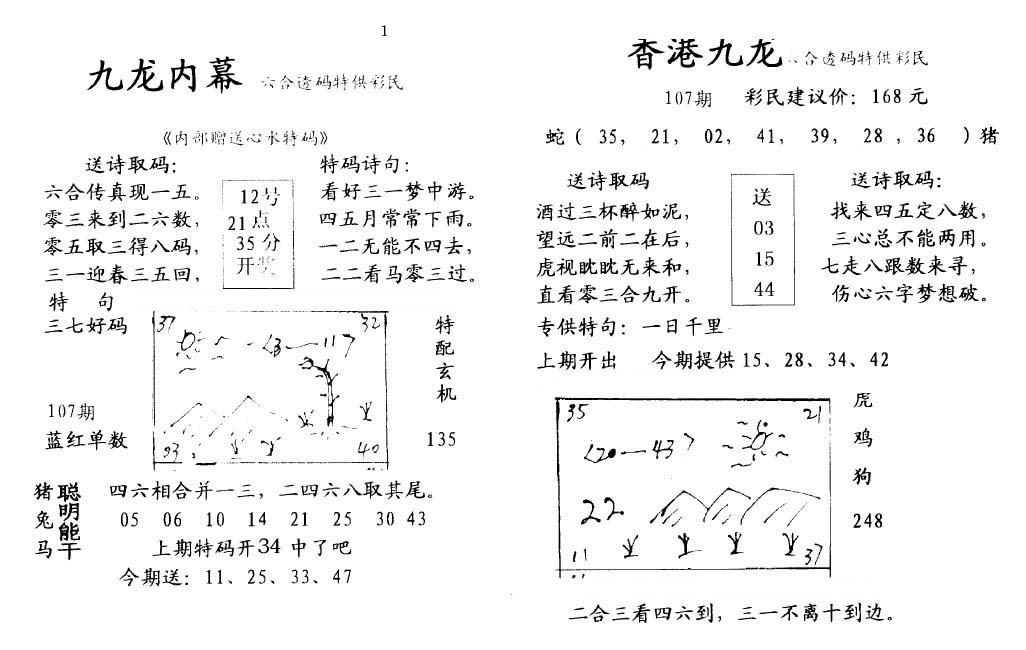 1
九龙内幕 六合透码特供彩民
《内部赠送心水特码》
送诗取码：
六合传真现一五。
零三来到二六数，
零五取三得八码，
三一迎春三五回，
特 句
三七好码
12号
21点
35分
开奖
特码诗句：
看好三一梦中游。
四五月常常下雨。
一二无能不四去，
二二看马零三过。
37
32
<3—11>
03
40
特配玄机
135
107期
蓝红单数
猪兔马
聪明能干
四六相合并一三，二四六八取其尾。
05 06 10 14 21 25 30 43
上期特码开34 中了吧
今期送：11、25、33、47
香港九龙 六合透码特供彩民
107期 彩民建议价：168元
蛇（ 35， 21， 02， 41， 39， 28 ，36 ）猪
送诗取码
酒过三杯醉如泥，
望远二前二在后，
虎视眈眈无来和，
直看零三合九开。
送
03
15
44
送诗取码：
找来四五定八数，
三心总不能两用。
七走八跟数来寻，
伤心六字梦想破。
专供特句：一日千里
上期开出 今期提供15、28、34、42
35
21
<20—43>
22
11
37
虎
鸡
狗
248
二合三看四六到，三一不离十到边。